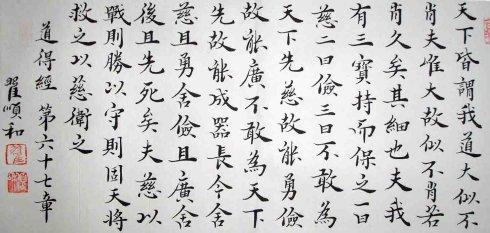 天下皆謂我道大似不
肖夫唯大故似不肖若
肖久矣其細也夫我
有三寶持而保之一曰
慈二曰儉三曰不敢為
天下先慈故能勇儉
故能廣不敢為天下
先故能成器長今舍
慈且勇舍儉且廣舍
後且先死矣夫慈以
戰則勝以守則固天將
救之以慈衛之
道得經 第六十七章
翟順和